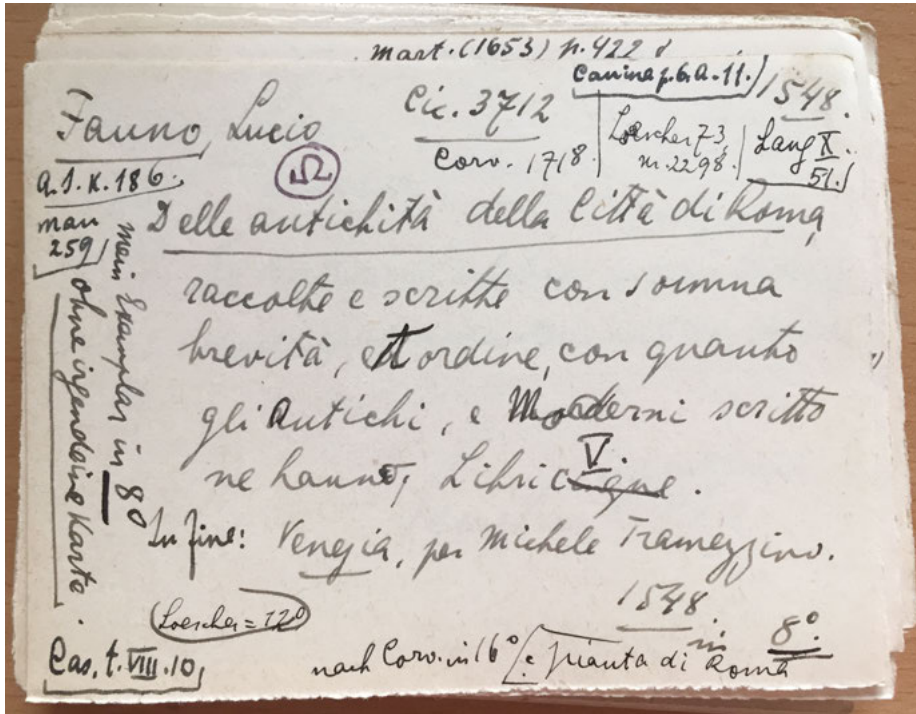 Mart. (1653) p. 422
Canina p. 6. A. 11.
1548.
Fauno, Lucio
Cic. 3712
Corv. 1718.
Loescher 73,
nr. 2298.
Lang X
51.
a. S. K. 186.
5
mau
259
Delle antichità della Città di Roma,
raccolte e scritte con somma
brevità, et ordine, con quanto
gli Antichi, e Moderni scritto
ne hanno, Libri cinque.
V.
In fine: Venezia, per Michele Tramezzino.
1548
in 8°.
mein Exemplar in 8°
ohne irgendeine Karte.
(Loescher = 12°)
Cas. t. VIII. 10,
nach Corv. in 16° e pianta di Roma